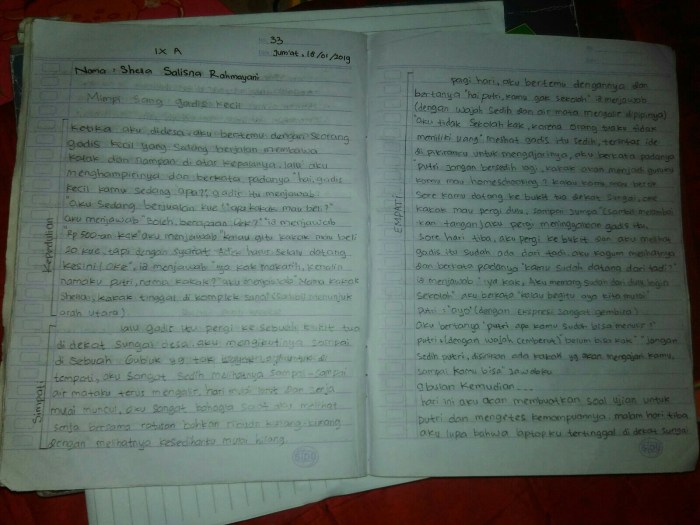 33
IX A
Jum'at, 18/01/2019
Nama : Shesa Salisna Rahmayani
Mimpi Sang gadis kecil
Ketika aku didesa, aku bertemu dengan seorang
gadis kecil yang sedang berjalan membawa
kotak dan siampan di atar kepalanya, lalu aku
menghampirinya dan bertanya padanya "hai, gadis
kecil kamu sedang apa?", gadis itu menjawab
"Aku sedang berjualan kue
aku menjawab "boleh, berapaan
"Rp 500-an kak" aku menjawab kakak mau beli
20 kue, tapi dengan syarat kamu harus selalu datang
kesini! oke", ia menjawab "ya kak makasih, kenalin
namaku putri, nama kakak?" aku menjawab "Nama kakak
Shesa, kakak tinggal di komplek sana! (sambil menunjuk
arah utara)
Kepedulian
lalu gadis itu pergi ke sebuah bukit tua
di dekat sungai desa, aku mengikutinya sampai
di sebuah gubuk yg tak
tempati, aku sangat sedih melihatnya sampai-sampai
air mataku terus mengalir, hari mulai sore dan senja
mulai muncul, aku sangat bahagia saat aku melihat
senja bersama ratusan bahkan ribuan kunang-kunang
dengan melihatnya kesedihanku mulai hilang
Simpati
pagi hari, aku bertemu dengannya dan
bertanya "hai putri, kamu gak sekolah" ia menjawab
(dengan wajah sedih dan air mata mengalir dipipinya)
"aku tidak sekolah kak, karena orang tuaku tidak
memiliki uang" melihat gadis itu sedih, terlintas ide
di pikiranku untuk mengajarinya, aku berkata padanya
"putri jangan bersedih lagi, kakak akan menjadi gurumu
kamu mau homeschooling? kalau kamu mau nanti
sore kamu datang ke bukit tua dekat sungai, oke
kakak mau pergi dulu, sampai jumpa" (sambil melambai
kan tangan) aku pergi meninggalkan gadis itu.
Sore hari tiba, aku pergi ke bukit dan aku melihat
gadis itu sudah ada dari tadi, aku kagum melihatnya
dan berkata padanya "kamu sudah datang dari tadi?"
ia menjawab "ya kak, Aku memang sudah dari dulu ingin
sekolah" aku berkata "kalau begitu ayo kita mulai"
putri : "ayo" (dengan ekspresi sangat gembira)
aku bertanya "putri apa kamu sudah bisa menulis?"
putri : (dengan wajah cemberut) belum bisa kak" "Jangan
sedih putri, disinikan ada kakak yg akan mengajari kamu,
sampai kamu bisa" Jawabku
6 bulan kemudian...
hari ini aku akan membuatkan soal ujian untuk
putri dan mengetes kemampuannya, malam hari tiba
aku lupa bahwa laptopku tertinggal di dekat sungai
EMPATI